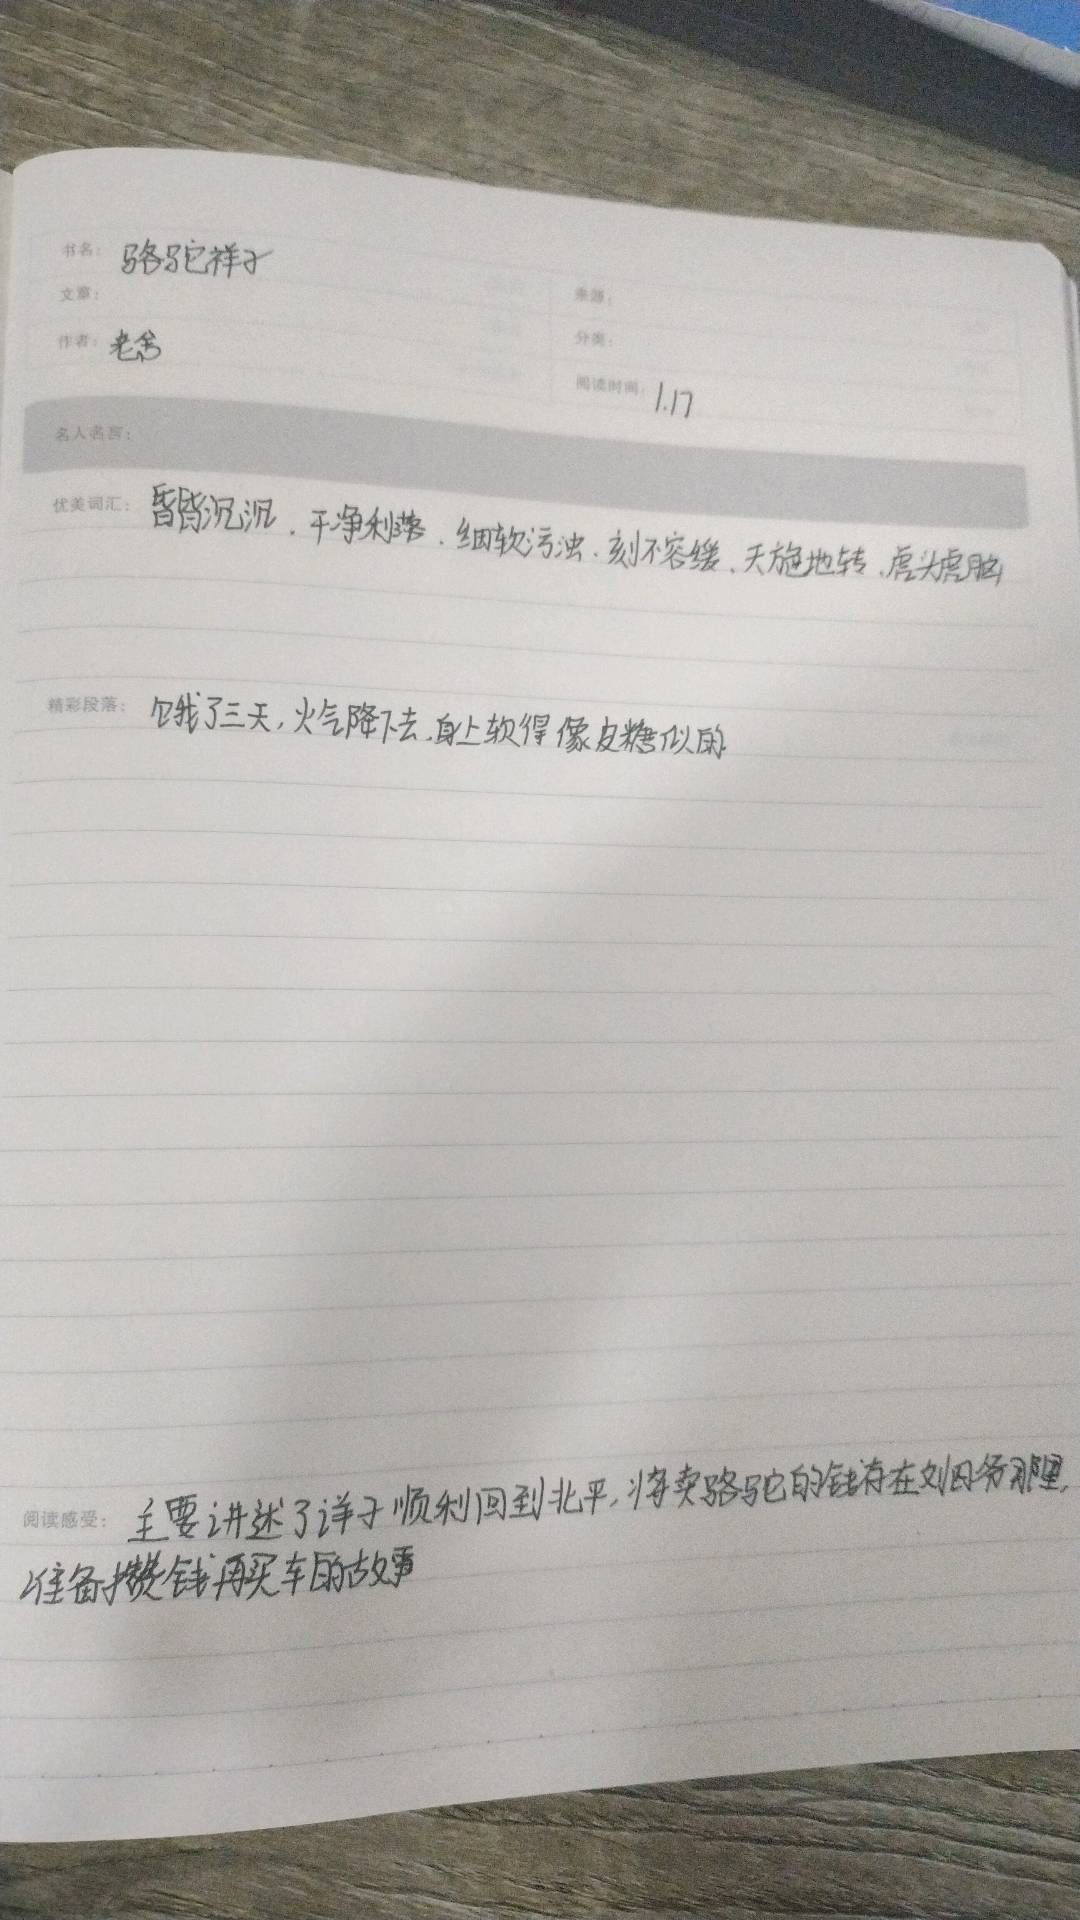 书名: 骆驼祥子
文章:
来源:
作者: 老舍
分类:
阅读时间: 1.17
名人名言:
优美词汇: 昏昏沉沉、干净利落、细软污浊、刻不容缓、天旋地转、虎头虎脑
精彩段落: 饿了三天,火气降下去,身上软得像皮糖似的
阅读感受: 主要讲述了祥子顺利回到北平,将卖骆驼的钱存在刘四爷那里,
准备攒钱再买车的故事